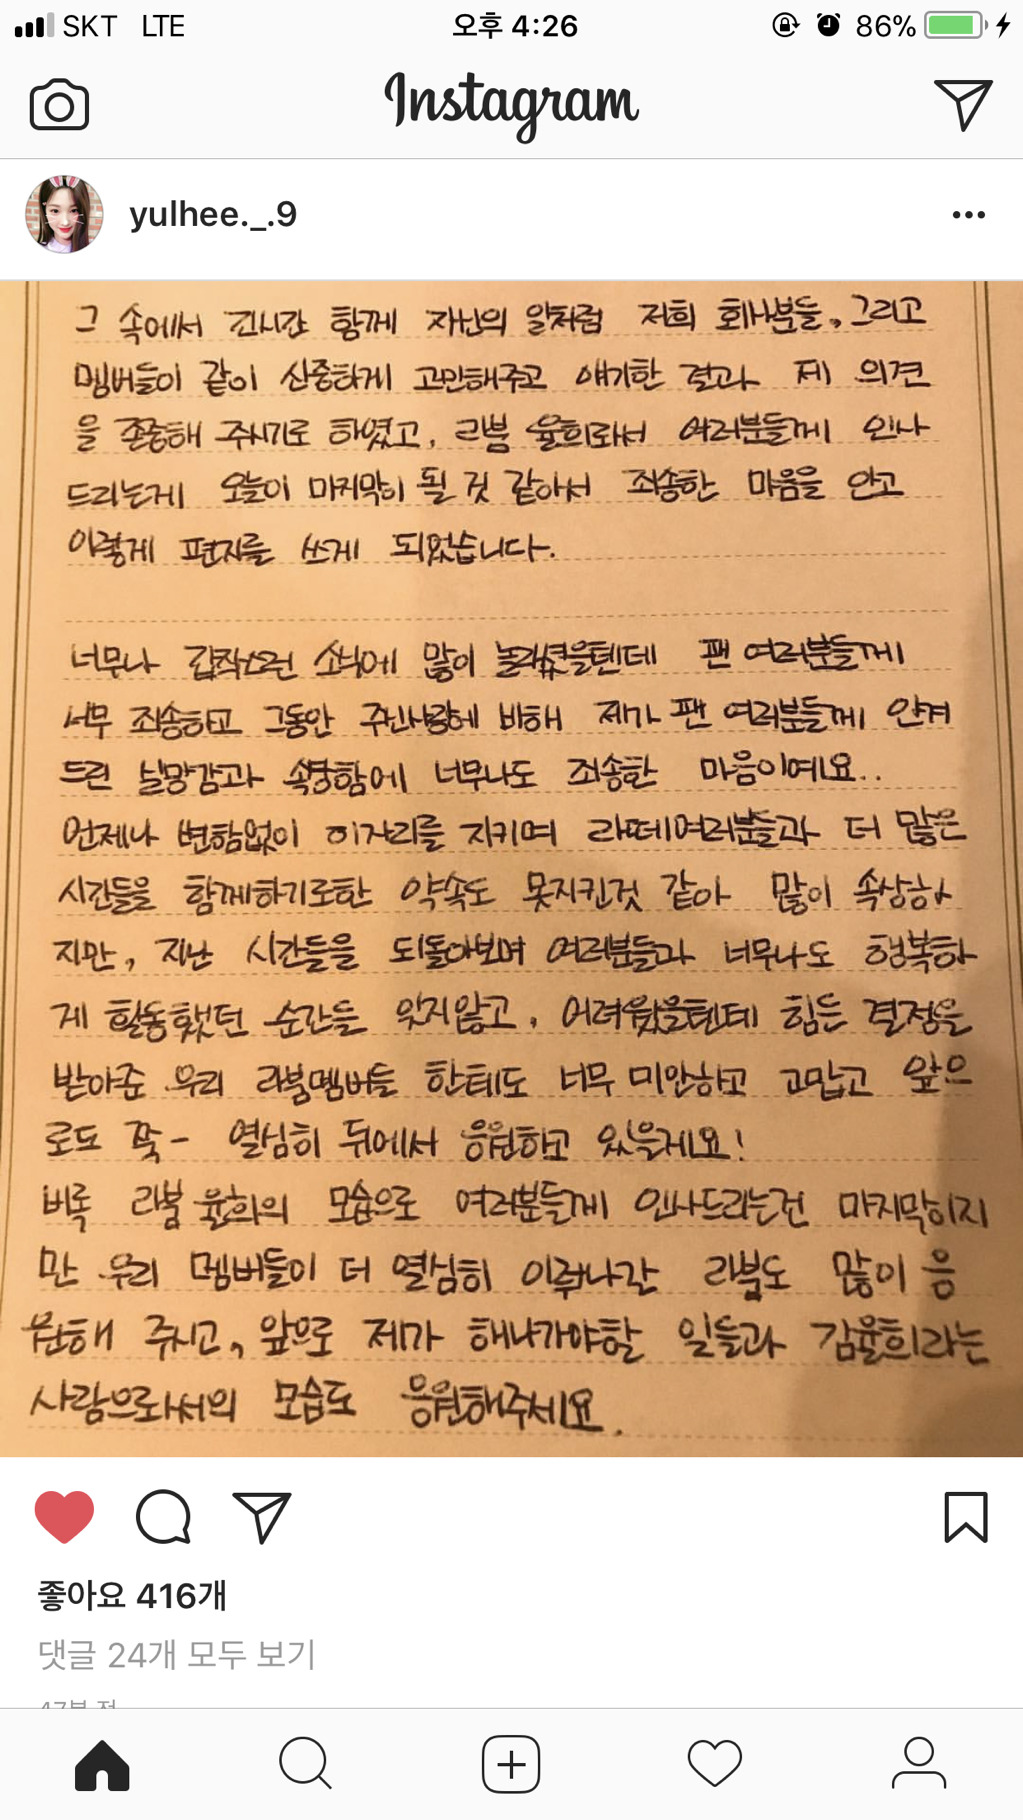 SKT LTE 오후 4:26 86%
Instagram
yulhee._.9
그 속에서 긴시간 함께 자신의 일처럼 저희 회사분들, 그리고
멤버들이 같이 신중하게 고민해주고 얘기한 결과 제 의견
을 존중해 주시기로 하였고, 라붐 율희로서 여러분들께 인사
드리는게 오늘이 마지막이 될 것 같아서 죄송한 마음을 안고
이렇게 편지를 쓰게 되었습니다.
너무나 갑작스런 소식에 많이 놀라셨을텐데 팬 여러분들께
너무 죄송하고 그동안 주신사랑에 비해 제가 팬 여러분들께 안겨
드린 실망감과 속상함에 너무나도 죄송한 마음이에요..
언제나 변함없이 이자리를 지키며 라떼여러분들과 더 많은
시간들을 함께하기로한 약속도 못지킨것 같아 많이 속상하
지만, 지난 시간들을 되돌아보며 여러분들과 너무나도 행복하
게 활동했던 순간들 잊지않고, 어려웠을텐데 힘든 결정을
받아준 우리 라붐멤버들 한테도 너무 미안하고 고맙고 앞으
로도 쭉- 열심히 뒤에서 응원하고 있을게요!
비록 라붐 율희의 모습으로 여러분들께 인사드리는건 마지막이지
만 우리 멤버들이 더 열심히 이뤄나갈 라붐도 많이 응
원해 주시고, 앞으로 제가 해나가야할 일들과 김율희라는
사람으로서의 모습도 응원해주세요.
좋아요 416개
댓글 24개 모두 보기
47분 전